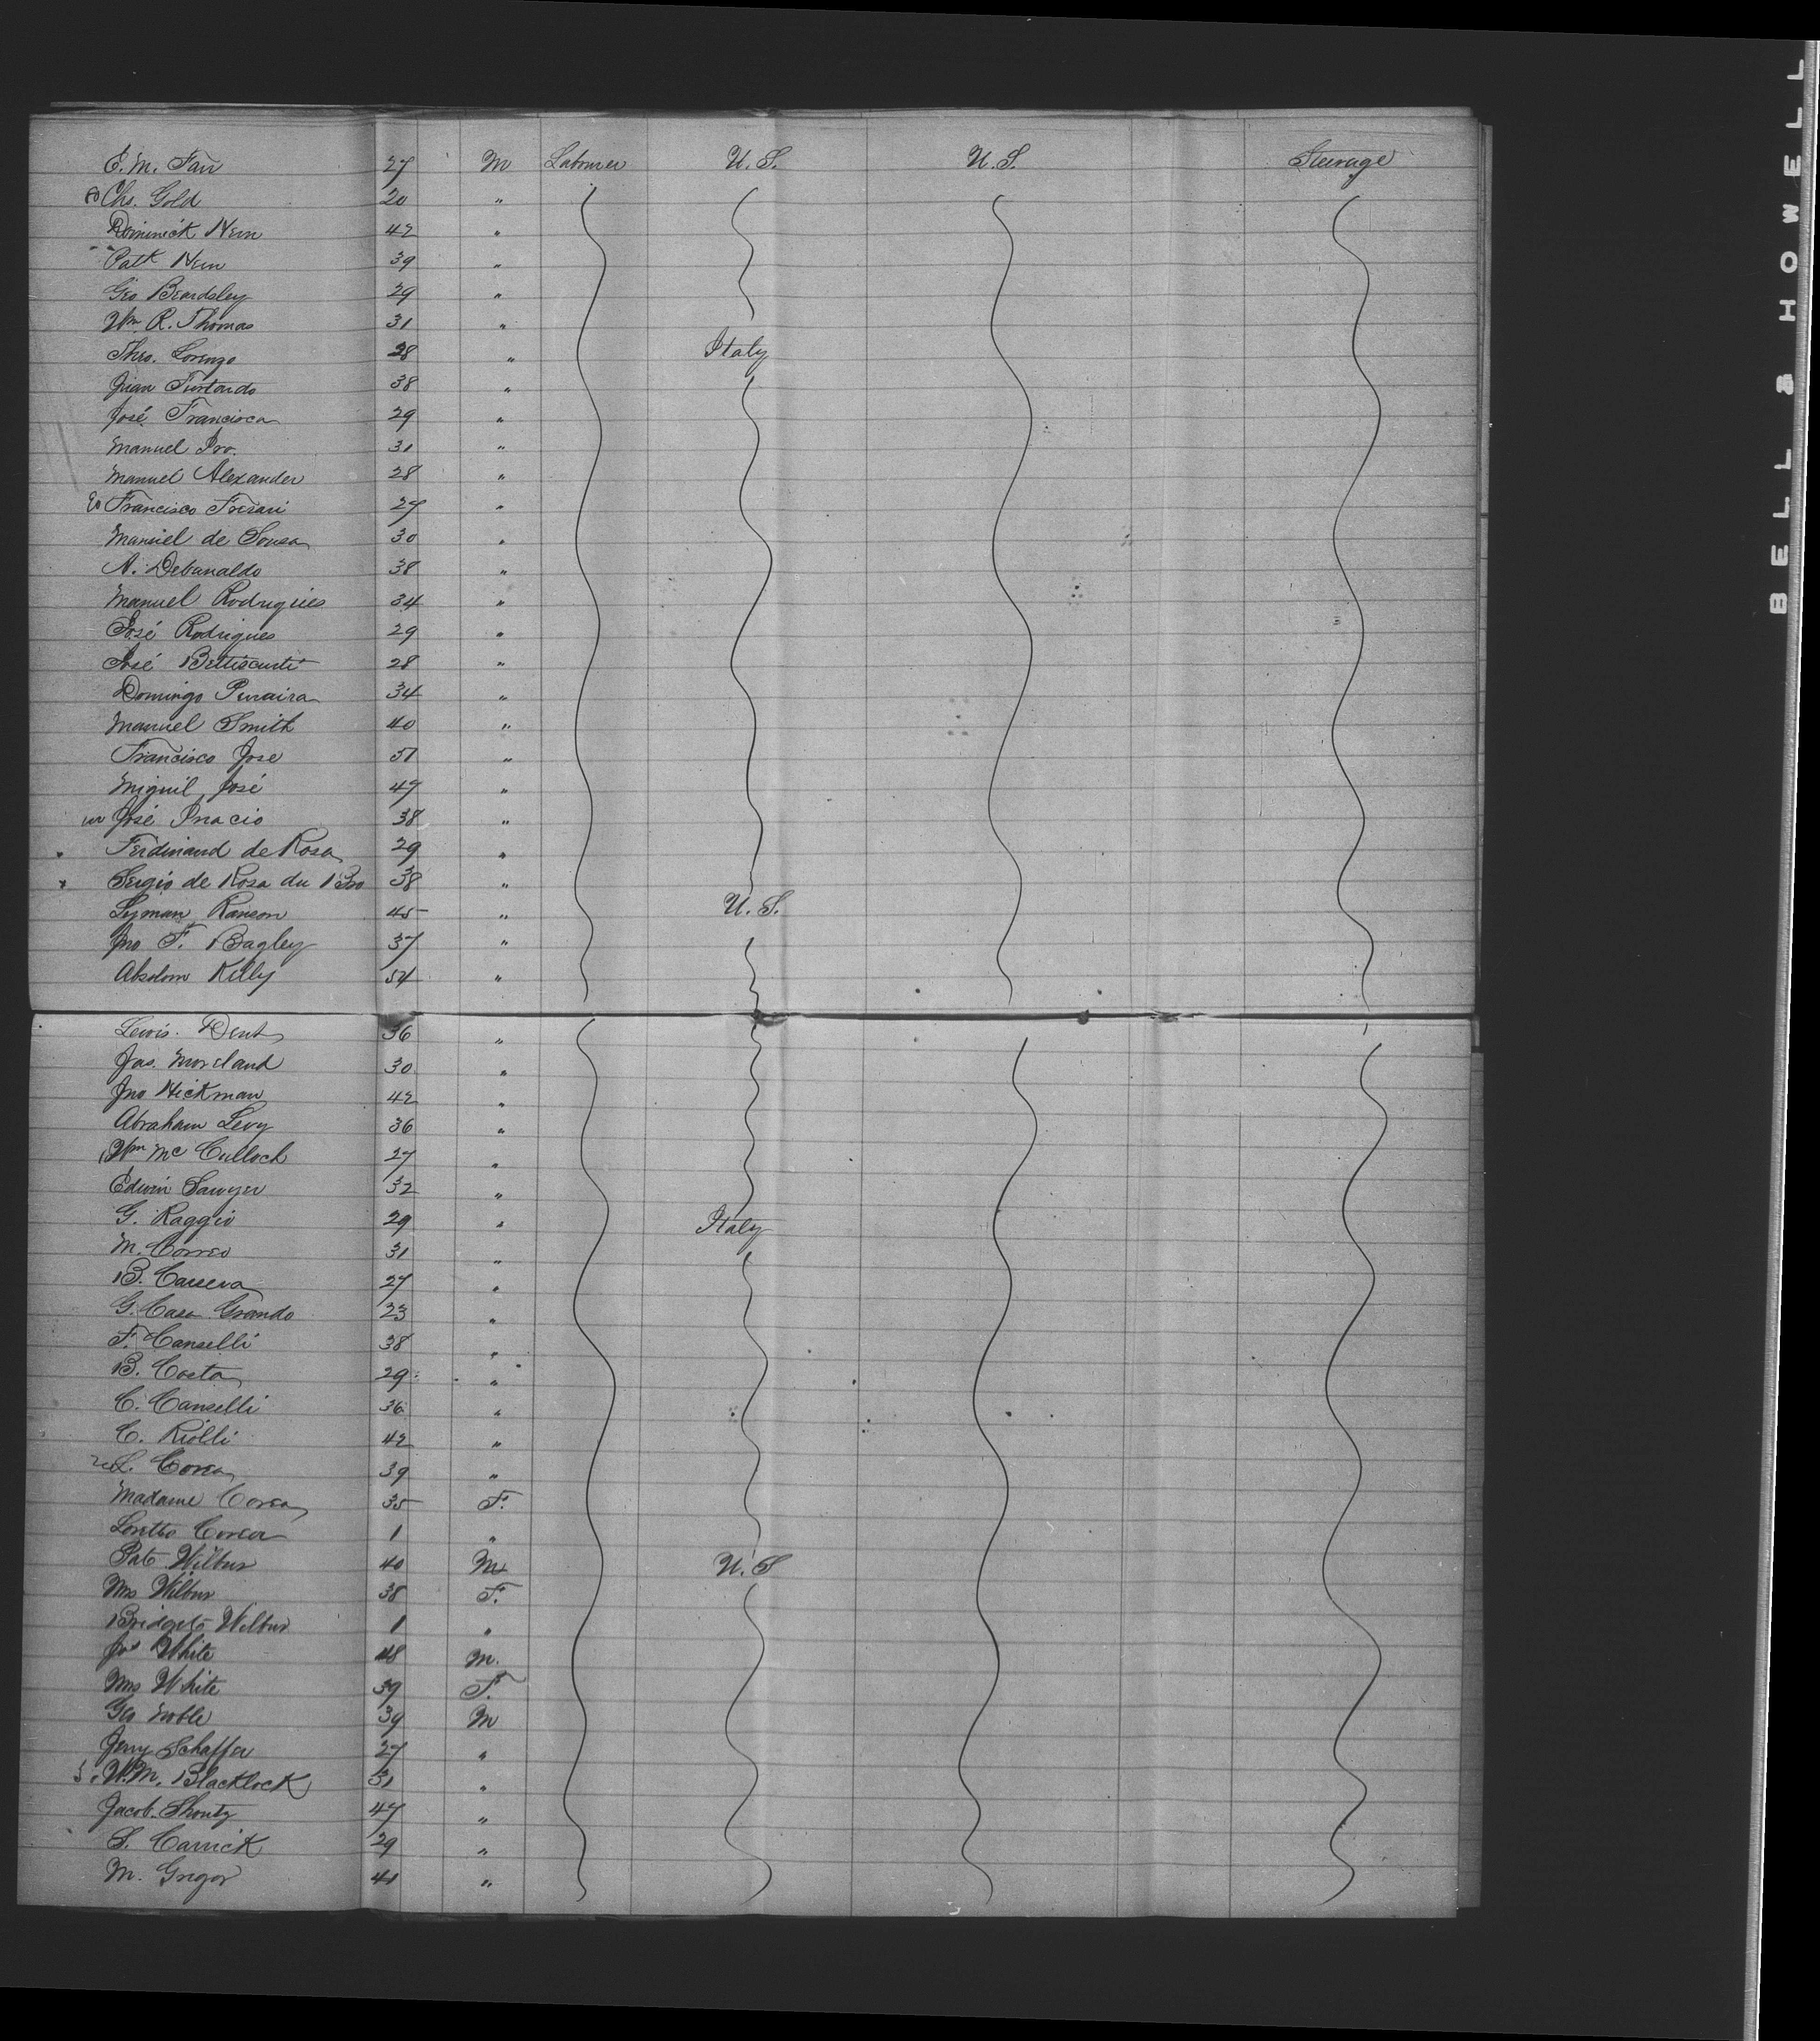 E. M. Farr 27 M Labourer U. S. U. S. Steerage
Chs. Gold 20 "
Dominick Hern 42 "
Patk Hern 39 "
Geo Beardsley 29 "
Wm R. Thomas 31 "
Theo. Lorenzo 28 " Italy
Juan Furtardo 38 "
José Francisca 29 "
Manuel Pro. 31 "
Manuel Alexander 28 "
Francisco 27 "
Manuel de Sousa 30 "
A. Debanaldo 38 "
Manuel Rodrigues 34 "
José Rodrigues 29 "
José 28 "
Domingo Peraira 34 "
Manuel Smith 40 "
Francisco Jose 51 "
Miguil José 47 "
José Inacio 38 "
Ferdinand de Rosa 29 "
Sergio de Rosa du 38 "
Lyman Ranson 45 " U. S.
Jno F. Bagley 37 "
Absolom Kelly 54 "
Lewis Dent 36 "
Jas. Moreland 30 "
Jno Hickman 42 "
Abraham Levy 36 "
Wm Mc Culloch 27 "
Edwin Sawyer 32 "
G. Raggio 29 " Italy
M. Correo 31 "
B. Carrera 27 "
G. Casa Grando 23 "
F. Canselli 38 "
B. Costa 29 "
C. Canselli 36 "
C. Riolli 42 "
L. Corea 39 "
Madame Corea 35 F.
Loretto Corea 1 "
Pat Wilbur 40 M U. S
Mrs Wilbur 38 F.
Bridgets Wilbur 1 "
Jos White 48 M.
Mrs White 39 F.
Geo Noble 39 M
Jerry Schaffer 27 "
W. M. Blacklock 31 "
Jacob Shontz 47 "
S. Carrick 29 "
M. Grigor 41 "
BELL & HOWELL